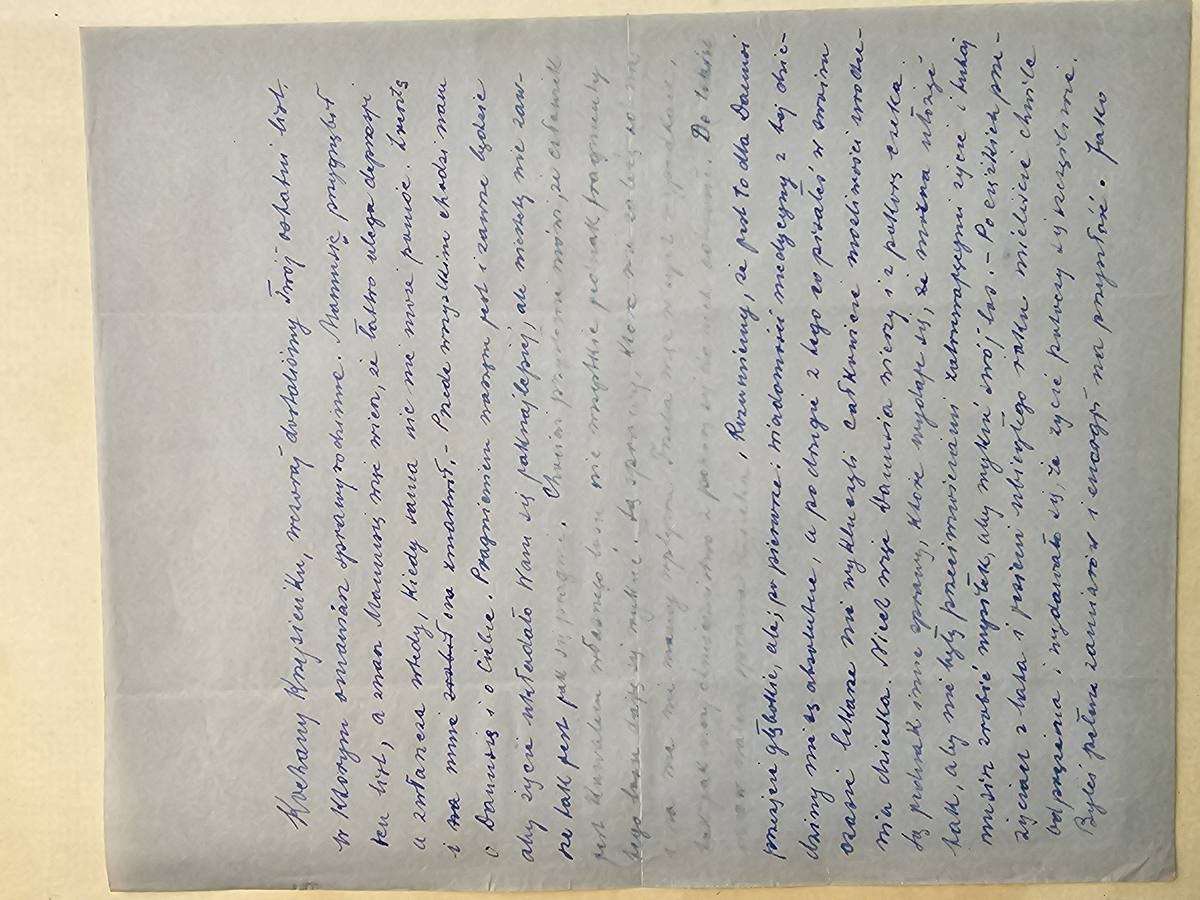 Kochany Krzysieńku, wczoraj dostaliśmy Twój ostatni list
w którym omawiasz sprawy rodzinne. Mamusię przygnębił
ten list, a znasz Mamusię nie nieco, że łatwo ulega depresji
a zwłaszcza wtedy, kiedy sama nic nie może pomóc. Zresztą
i na mnie zrobił ona zmartwił. – Przede wszystkim chodzi nam
o Danusię i o Ciebie. Pragnieniem naszym jest i zawsze będzie
aby życie układało Wam się jaknajlepiej, ale niestety nie zaw-
sze tak jest jak się pragnie. Chociaż przysłowie mówi, że człowiek
jest kowalem własnego losu nie wszystkie jednak fragmenty
tego losu dają się wykuć. Są sprawy, które nie zależą od nas
i na nie mamy wpływu. Trzeba więc
. Do takiej
. Rozumiemy, że jest to dla Danusi
przejście głębokie, ale; po pierwsze: wiadomości medycyny z tej dzie-
dziny nie są absolutne, a po drugie z tego co pisałeś w swoim
czasie lekarze nie wykluczyli całkowicie możliwości urodze-
nia dziecka. Niech więc Danusia wierzy i z pokorą czeka.
Są jednak inne sprawy, które wydaje się, że można ułożyć
tak, aby nie były przeciwieństwami zatruwającymi życie i tutaj
musisz zrobić wysiłek, aby wykuć swój los. – Po ciężkich prze-
życiach z lata i jesieni ubiegłego roku mieliście chwile
odprężenia i wydawało się, że życie potoczy się szczęśliwie.
Byłeś pełen zamiarów i energii na przyszłość. Jako